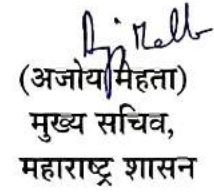 (अजोय मेहता)
मुख्य सचिव,
महाराष्ट्र शासन